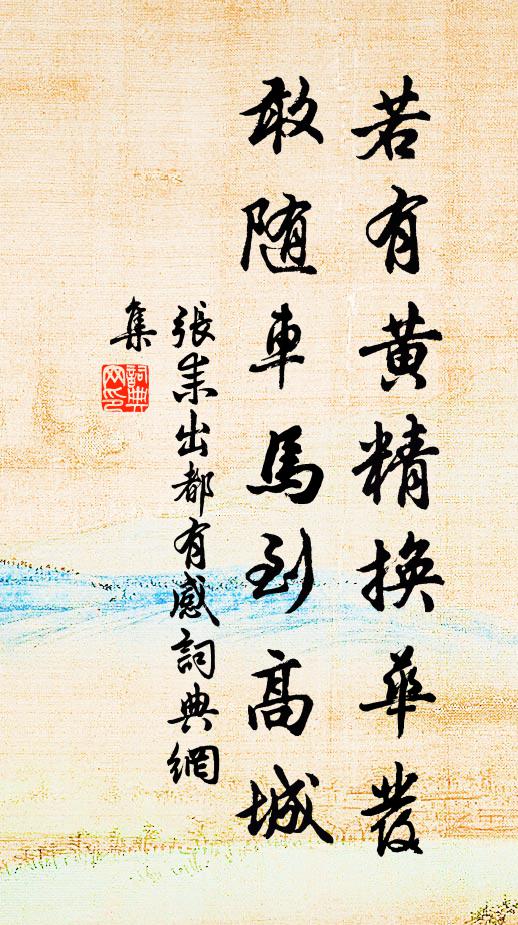 若有黄精換華發
敢随車馬到高城
張耒出都有感詞典網
集
詞典
网印